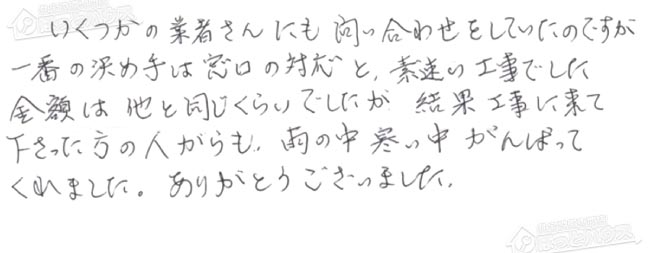 いくつかの業者さんにも問い合わせをしていたのですが
一番の決め手は窓口の対応と、素速い工事でした
金額は他と同じくらいでしたが 結果工事に来て
下さった方の人がらも、雨の中寒い中がんばって
くれました。ありがとうございました。